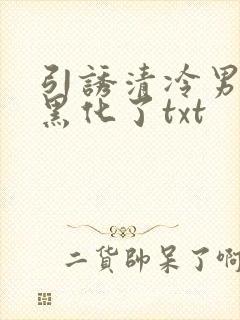 引誘清冷男
黑化了txt
二貨帥呆了啊